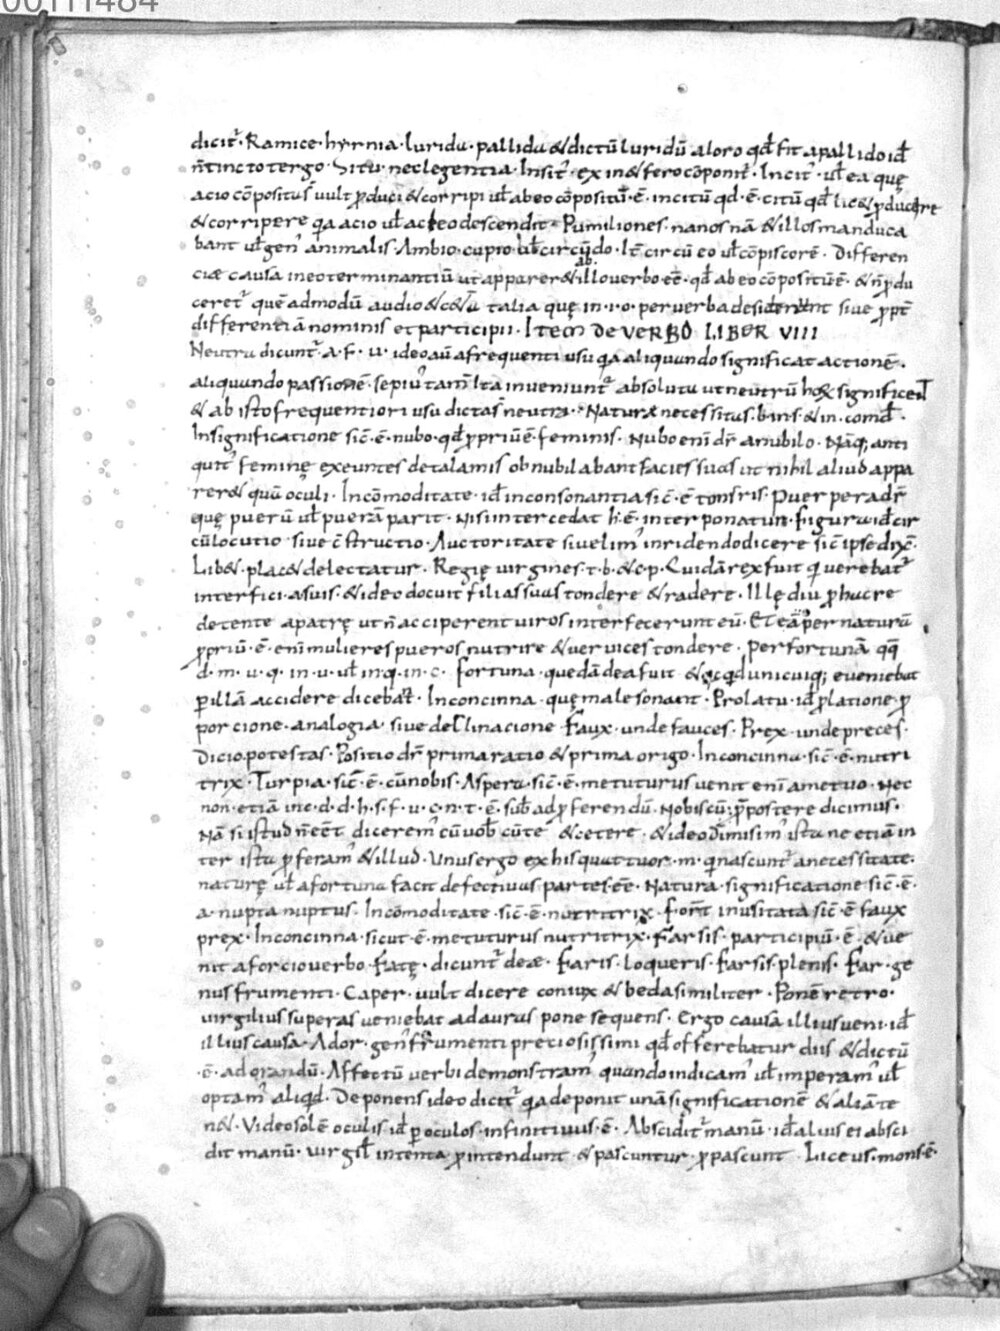 00111484
dicit᷑· Ramice· hyrnia· lurida· pallida & dictū luridū a loro qđ fit a pallido iđ
n̄ tincto tergo· Situ· neclegentia· Insit᷑· ex in & fero cōponit᷑· Incit᷑· uł ea quę
acio cōpositus᷑ vult ꝓduci & corripi uł ab eo cōpositū· ē· incitū qđ· ē· citū qđ lic& ꝓducere
& corripere q̇a acio uł acteo descendit· Pumiliones· nanos nā & illos manduca
bant uł gen᷑ animalis· Ambio· cupio uł circūdo· It̄ circū eo uł cōpiscorē· Differen
ciæ causa in eo terminantiū ut apparer& ab illo uerbo eē· qđ ab eo cōpositū ē· & n̄ ꝓdu
ceret᷑ quē admodū audio & c&a talia quę in· i·o· per uerba desiderant sive ꝓpt̄
differentiā nominis et participii· ITEM DE VERBO LIBER VIIII
Neutra dicunt᷑· a· f· u· ideo aū a frequenti usu q̇a aliquando significat actionē·
aliquando passionē· sepiu᷑ tam̄ Ita inueniunt᷑ absoluta ut neutrū hox significent
& ab isto frequentiori usu dictas᷑ neutra· Naturæ necessitus· bins· & in· comđ·
In significatione sic̄· ē· nubo· qđ ꝓpriū ē· feminis· Nubo enī dr̄ a nubilo· Nāq; anti
quit᷑ feminę exeuntes de talamis obnubilabant facies suas ut nihil aliud appa
rer& quā oculi· Incōmoditate· iđ inconsonantia sic̄· ē tonsris· Puer per a dr̄
quę puerū uł puerā parit· Nisi intercedat h· ē· interponatur· figura iđ cir
cūlocutio sive c̄structio· Auctoritate sive lim᷑ inridendo dicere sic̄ ipse dix̄·
Lib&· plac& delectatur· Regię uirgines· t· b· & c· p· Quidā rex fuit q̇ uerebat᷑
interfici· a suis· & ideo docuit filias suas tondere & radere· Illę diu ꝓhac re
detente a patrę ut n̄ acciperent uiros interfecerunt eū· Et eā per naturū
ꝓpriū· ē· enī mulieres pueros nutrire & ueruices tondere· Per fortunā qq̄
d· m· u· q· in· u· uł in· q· in· c· fortuna· quedā dea fuit & qcqđ unicuiq; eueniebat
ꝑ illā accidere dicebat᷑· Inconcinna· quę male sonant· Prolatu· iđ ꝓlatione· ꝓ
porcione· analogia· sive declinacione· Faux· unde fauces· Prex· unde preces·
Dicio· potestas· Positio dr̄ prima ratio & prima origo· Inconcinnu· sic̄· ē· nutri
trix· Turpia· sic̄· ē· cū nobis· Aspera· sic̄· ē· metuturus uenit enī a metuo· Nec
non· etiā inc· d· d· h· s· f· u· c· n· t· ē· sub· ad ꝓferendū· Nobiscū; p̄postere dicimus·
Nā si istud n̄ eēt dicerem᷑ cū uob̄ cū te & cetere· & ideo dimisim᷑ ista ne etiā in
ter ista ꝓferam᷑ & illud· Unus ergo ex his quattuor· m· q̇ nascunt᷑ a necessitate·
naturę uł a fortuna facit defectiuas partes· eē· Natura· significatione sic̄· ē·
a· nupta nuptus· Incōmoditate· sic̄· ē· nutritrix· fort᷑ inusitata sic̄· ē faux
prex· Inconcinna· sicut· ē· metuturus nutritrix· Farsis· participiū· ē· & ue
nit a forcio uerbo· Fatę· dicunt᷑ deæ· Faris· loqueris· Farsis plenis· Far· ge
nus frumenti· Caper· uult dicere coniux & beda similiter· Ponē retro·
uirgilius superas ueniebat ad auras pone sequens· Ergo causa illius ueni· iđ
illius causa· Ador· gen᷑ frumenti preciosissimi qđ offerebatur diis & dictū
·ē· ad orandū· Affectū uerbi demonstram᷑ quando indicam᷑ uł imperam᷑ uł
optam᷑ aliqđ· Deponens ideo dicit᷑ q̇a deponit unā significationē & aliā te
n&· Video solē oculis iđ ꝑ oculos· infinitiuus· ē· Absciditr̄ manū· iđ alius ei absci
dit manū· uirgił intenta ꝓ intendunt & pascuntur· ꝓ pascunt· Liceus· mons· ē·